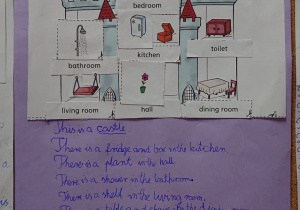 bedroom
kitchen
toilet
bathroom
living room
hall
dining room
This is a castle
There is a fridge and box in the kitchen.
There is a plant in the hall.
There is a shower in the bathroom.
There is a shelf in the living room.